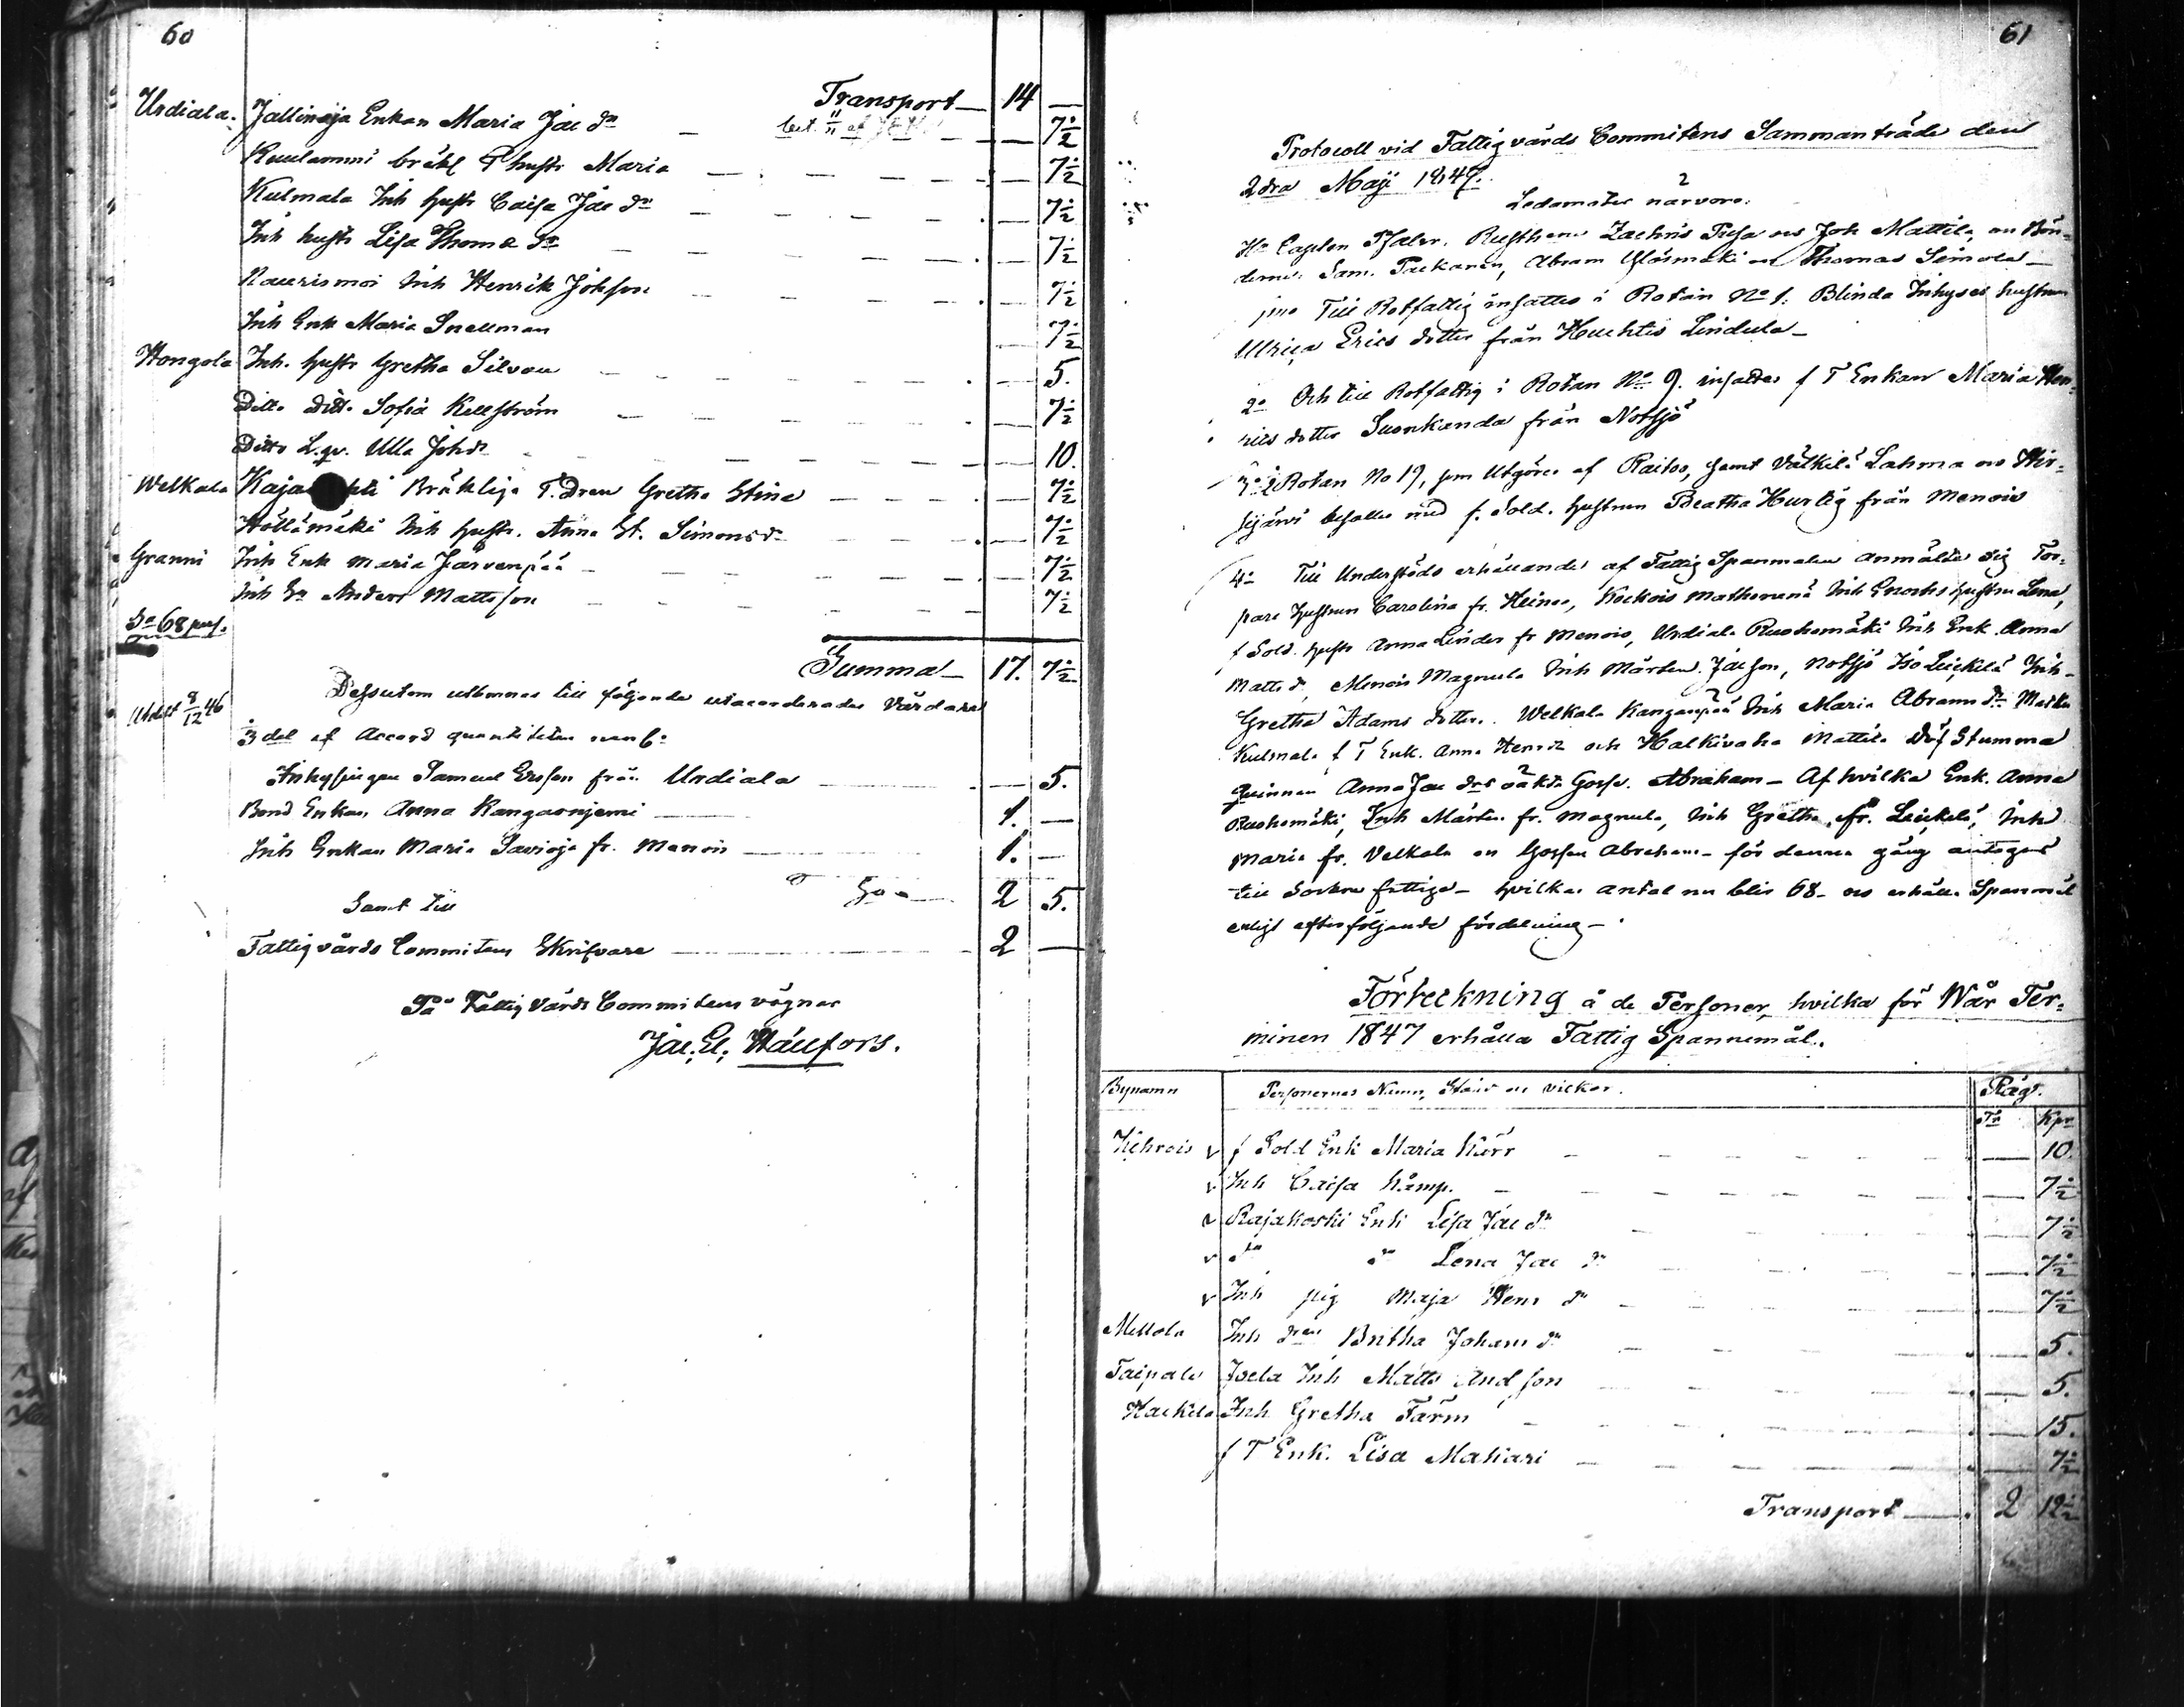 60
Transport — 14 —
Urdiala. Jallinoja Enkan Maria Jac dr — 7 1/2
Kuulammi bräkl T hustr Maria — 7 1/2
Kulmala Inh hustr Caisa Jac dr — 7 1/2
Inh hustr Lisa Thomæ dr — 7 1/2
Naurismoi Inh Henrik Johsson — 7 1/2
Inh Enk Maria Snellman — 7 1/2
Hongola Inh. hustr Gretha Silvan — 5.
Ditto ditto Sofia Kellström — 7 1/2
Ditto L.qv. Ulla Johdr — 10.
Welkala Kaja Bräkliga T. Dren Gretha Stina — 7 1/2
Höllämäki Inh hustr. Anna St. Simonsdr — 7 1/2
Granni Inh Enk Maria Järvenpää — 7 1/2
Inh Gn Anders Mattsson — 7 1/2
Sa 68 pers.
Summa — 17. 7 1/2
Utdelt 8/12 46
Dessutom utbmnes till följande utaccorderades Vårdare
del af Accord quantiteten
Inhysingen Samuel Ersson från Urdiala — 5.
Bond Enkan Anna Kangasnjemi — 1. —
Inh Enkan Maria Savioja fr. Menois — 1. —
Sa — 2 5.
Samt till
Fattigvårds Commiteens Skrifvare — 2 —
På Fattig Vårds Commiteens vägnar
Jac. El. Hällfors.
61
Protocoll vid Fattigvårds Commiteens Sammanträde den
2dra Maji 1847.
Ledamöter närvoro:
Hr Capellan Pfaler. Rusthm Zachris Pusa och Joh Mattila, och Bön-
derne Sam. Packanen, Abram Yläsmäki och Thomas Simola —
1mo Till Rotfattig insattes i Rotan No 1. Blinda Inhyses hustrun
Ulrica Erics dotter från Huhtis Lindula —
2o Och till Rotfattig i Rotan No 9. insattes f T Enkan Maria Hen-
rics dotter Suonkanda från Notsjö
3o i Rotan No 17, som utgöres af Raitos, samt Välkilä Lahma och Hir-
sijärvi besattes med f. Sold. hustrun Beatha Hurtig från Menois
4o Till Understöds erhållande af Fattig Spanmålen anmälte sig Tor-
pare hustrun Carolina fr. Heinos, Kockois Inh Enochs hustru Lena,
f Sold. hustr Anna Linder fr Menois, Urdiala Ruohomäki Inh Enk. Anna
Matts dr, Menois Magnula Inh Mårten Jacsson, Notsjö Iso Leickilä Inh
Gretha Adams dotter. Welkala Kangenpää Inh Maria Abrams dr
Kulmala f T Enk. Anna Henr dr och Halkivaha Mattila Döfstumma
Quinnan Anna Jac drs oäkta Gosse. Abraham — Af hvilka Enk. Anna
Ruohomäki, Inh Mårten fr. Magnula, Inh Gretha fr. Leickilä, Inh
Maria fr. Velkala och Gossen Abraham — för denna gång antogos
till Sockne fattiga — hvilkas antal nu blir 68 — och erhålla Spanmål
enligt efterföljande fördelning —
Förteckning å de Personer, hvilka för Wår Ter-
minen 1847 erhålla Fattig Spannemål.
Bynamn Personernes Namn, Stånd och vilkor. Råg.
Tr Kpr
Kehrois v f Sold Enk Maria Kärr — 10.
v Inh Caisa Kämp. — 7 1/2
v Rajakoski Enk Lisa Jac dr — 7 1/2
v do do Lena Jac dr — 7 1/2
v Inh pig Maja Henr dr — 7 1/2
Mellola Inh dren Britha Johans dr — 5.
Taipale Isela Inh Matts Andsson — 5.
Hackila Inh Gretha Färm — 15.
f T Enk. Lisa Mahari — 7 1/2
Transport — 2 12 1/2